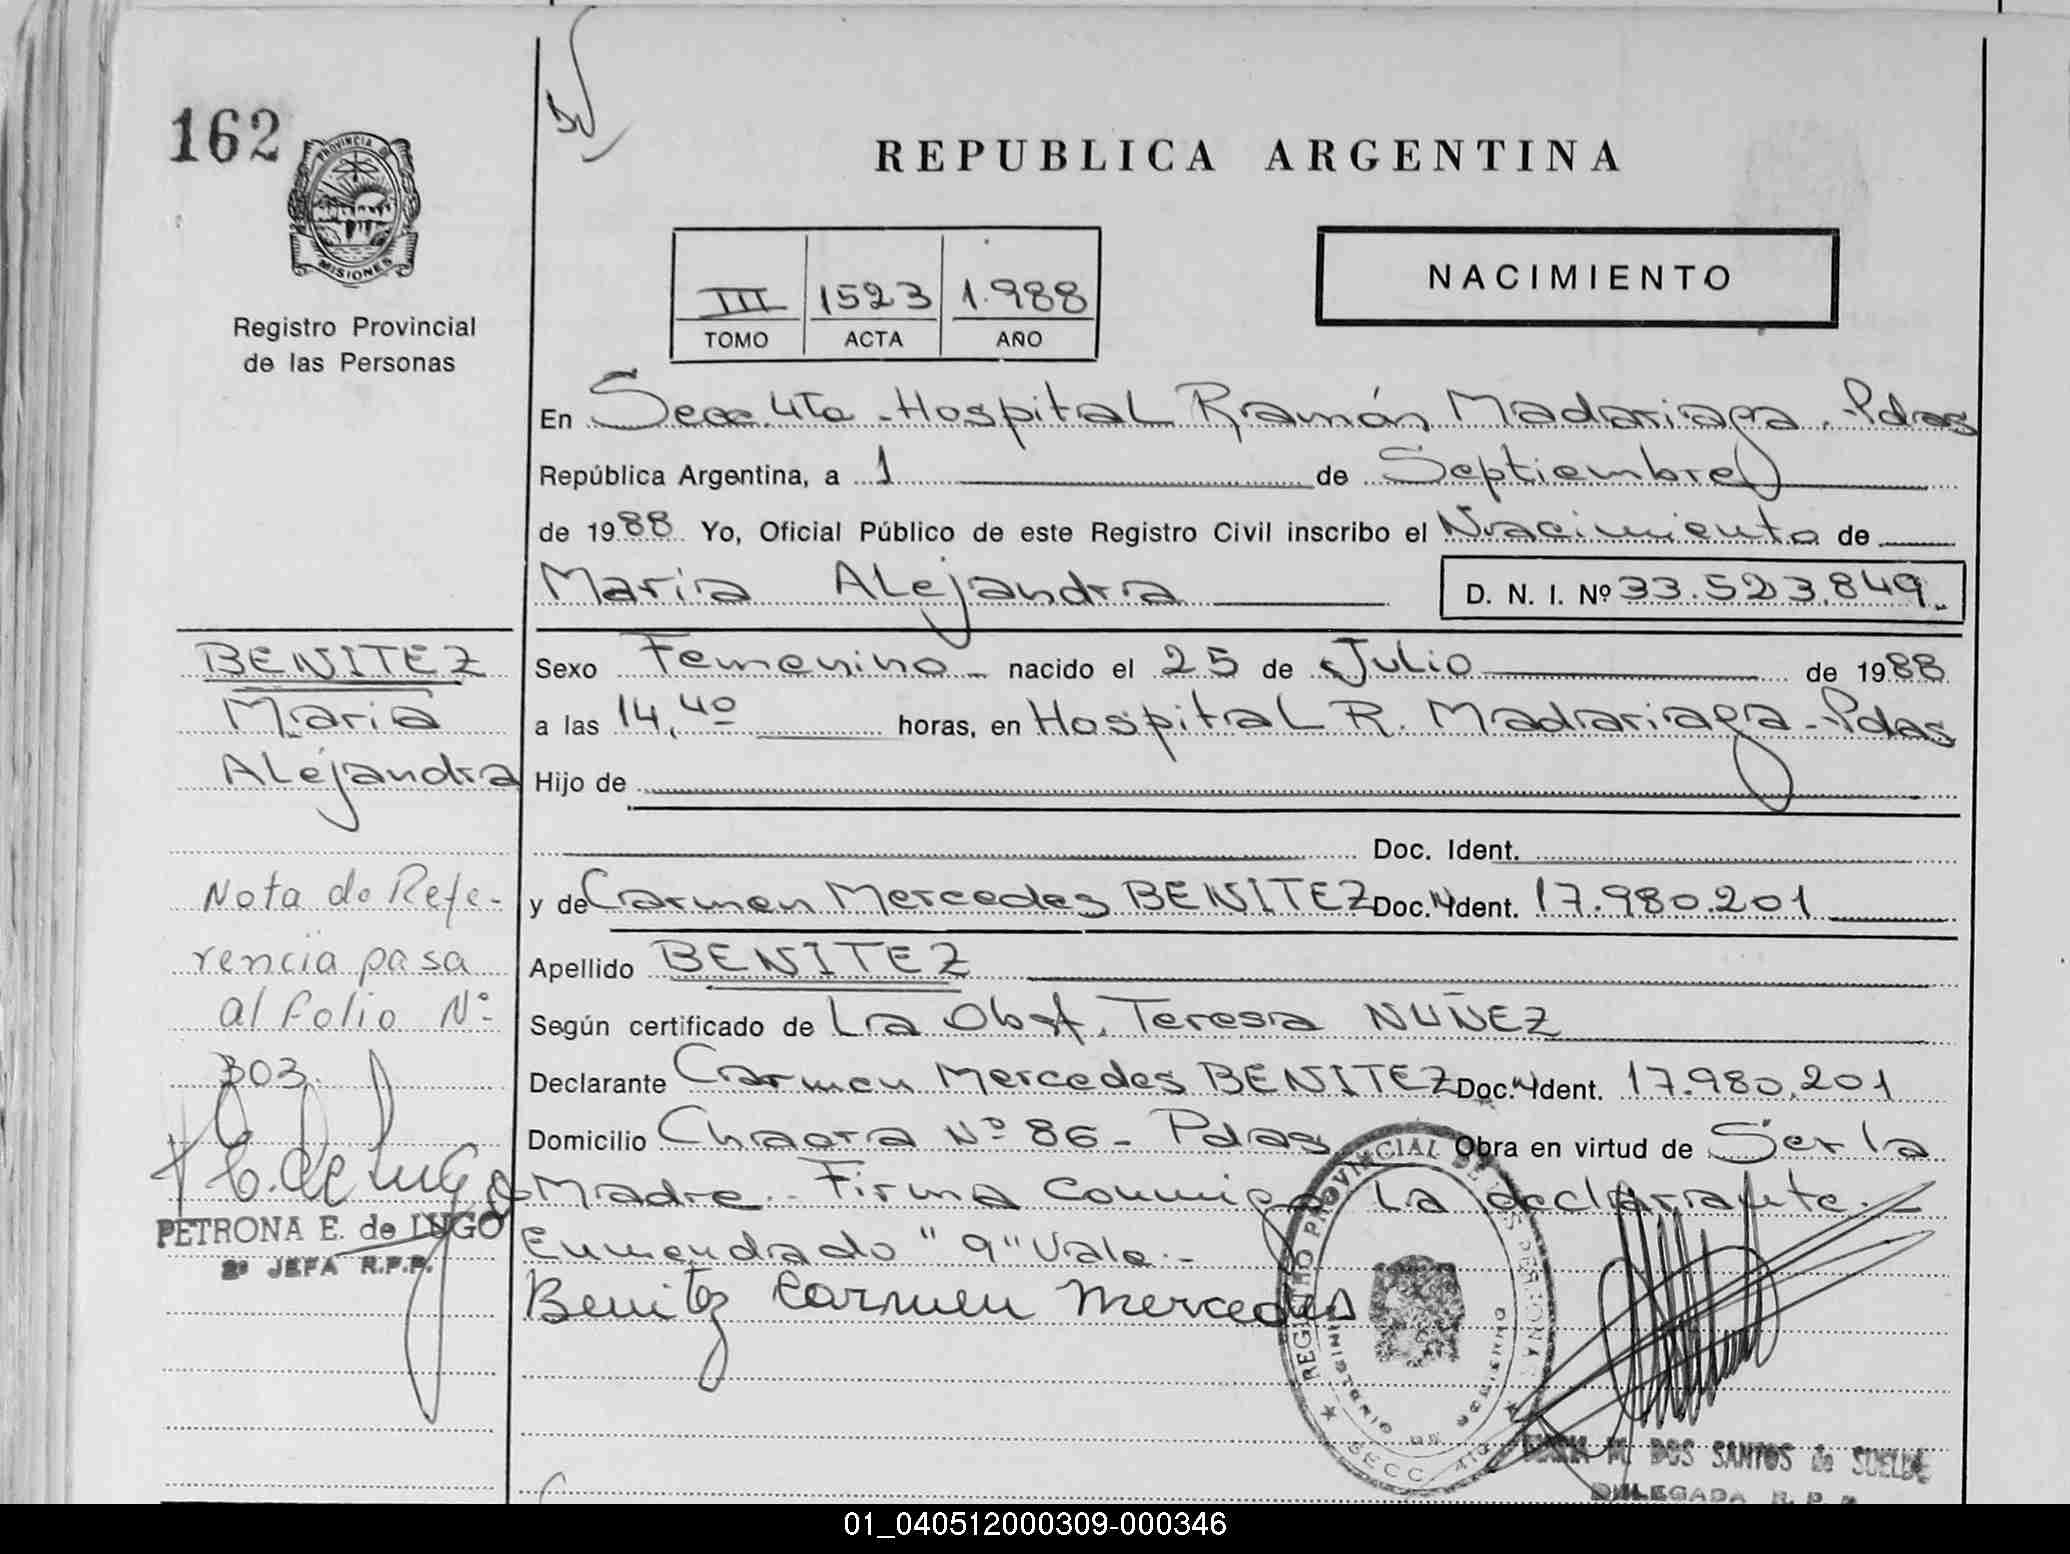 162
PROVINCIA DE
MISIONES
Registro Provincial
de las Personas
REPUBLICA ARGENTINA
III 1523 1.988
TOMO ACTA AÑO
NACIMIENTO
En Secc. 4Ta - Hospital Ramón Madariaga - Pdas
República Argentina, a 1 de Septiembre
de 1988 Yo, Oficial Público de este Registro Civil inscribo el Nacimiento de
Maria Alejandra D. N. I. Nº 33.523.849.
BENITEZ
Maria
Alejandra
Sexo Femenino - nacido el 25 de Julio de 1988
a las 14,40 horas, en Hospital R. Madariaga - Pdas
Hijo de
Doc. Ident.
y de Carmen Mercedes BENITEZ Doc. Ident. 17.980.201
Apellido BENITEZ
Según certificado de La Obst. Teresa NUÑEZ
Declarante Carmen Mercedes BENITEZ Doc. Ident. 17.980.201
Domicilio Chacra Nº 86 - Pdas Obra en virtud de Ser la
Madre - Firma conmigo la declarante. -
Enmendado "9" Vale. -
Benitez Carmen Mercedes
Nota de Refe-
rencia pasa
al folio Nº
303.
PETRONA E. de LUGO
2º JEFA R.P.P.
REGISTRO PROVINCIAL DE LAS PERSONAS
SECC. 4ta
M. DOS SANTOS de SUELDE
DELEGADA R. P. P.
01_040512000309-000346